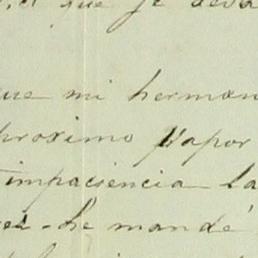 que se deva
que mi herman
proximo vapor
impaciencia la
he mandé